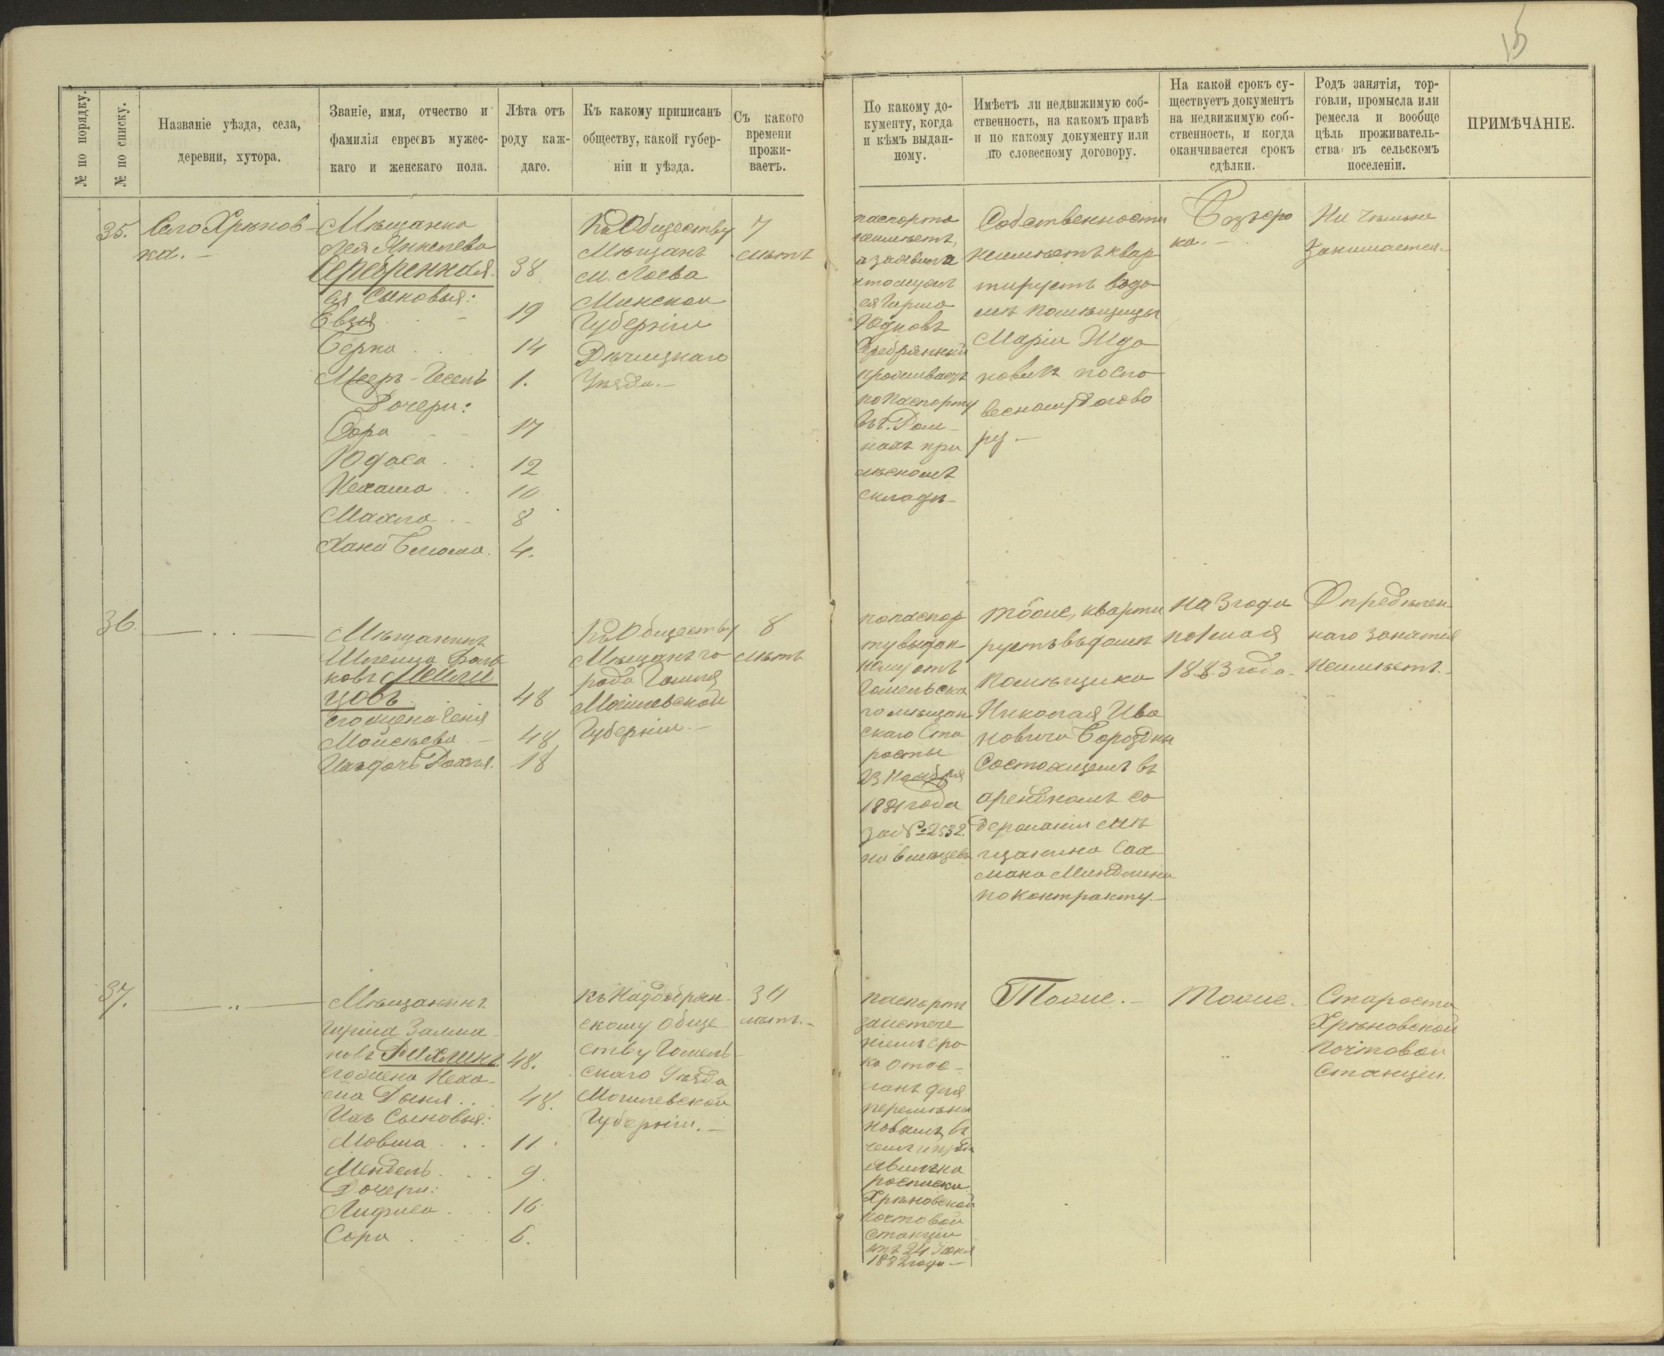 15
№ по порядку.
№ по списку.
Названіе уѣзда, села,
деревни, хутора.
Званіе, имя, отчество и
фамилія евреевъ мужес-
каго и женскаго пола.
Лѣта отъ
роду каж-
даго.
Къ какому приписанъ
обществу, какой губер-
ніи и уѣзда.
Съ какого
времени
прожи-
ваетъ.
По какому до-
кументу, когда
и кѣмъ выдан-
ному.
Имѣетъ ли недвижимую соб-
ственность, на какомъ правѣ
и по какому документу или
по словесному договору.
На какой срокъ су-
ществуетъ документъ
на недвижимую соб-
ственность, и когда
оканчивается срокъ
сдѣлки.
Родъ занятія, тор-
говли, промысла или
ремесла и вообще
цѣль проживатель-
ства въ сельскомъ
поселеніи.
ПРИМѢЧАНІЕ.
35.
Село Хрѣнов-
ка. -
Мѣщанка
Лея Янкелева
Серебренная
ея сыновья:
Евзя
Берка
Мееръ-Іосель
Дочери:
Сора
Юдаса
Нехама
Махля
Хана
38
19
14
1.
17
12
10
8
4.
Къ Обществу
Мѣщанъ
м. Лоева
Минской
Губерніи
Рѣчицкаго
Уѣзда. -
7
лѣтъ
паспорта
неимѣетъ,
а заявила
что мужъ
ея Гирша
Юдковъ
Серебрянный
проживаетъ
по паспорту
въ г. Ром-
нахъ при
лѣсномъ
складѣ -
Собственности
неимѣетъ квар
тируетъ в до
мѣ помѣщицы
Маріи Жда
новичъ по сло
весному догово
ру -
Безъ сро
ка. -
Ни чѣмъ не
занимается -
36.
Мѣщанинъ
цовъ
его жена Геня
Моисеева
Ихъ дочь Рохля.
48
48
18
Къ Обществу
Мѣщанъ го
рода Гомля
Могилевской
Губерніи. -
8
лѣтъ
по паспор
ту выдан
ному отъ
Гомельска
го мѣщан
скаго Ста
росты
23 Ноября
1881 года
за № 2532.
Тоже, кварти
руетъ въ домѣ
помѣщика
Николая Ива
новича Бороздны
Состоящемъ въ
арендномъ со
держаніи мѣ
щанина Сах
мана Миндлина
по контракту -
На 3 года
по 1 мая
1883 года. -
Опредѣлен
наго занятія
неимѣетъ. -
37.
Мѣщанинъ
Гирша Залма-
новъ Рихлинъ
его жена Неха-
ма Дыня
Ихъ Сыновья:
Мовша
Мендель
Дочери:
Лифша
Сора
48.
48.
11
9.
16
6.
скому Обще-
ству Гомель-
скаго Уѣзда
Могилевской
Губерніи. -
30
лѣтъ. -
паспортъ
за истече
ніемъ сро
ка отос-
ланъ для
перемѣны
новымъ въ
чемъ и предъ
явилъ на
росписки
Хрѣновской
почтовой
Станціи
отъ 24 Іюня
1882 года -
Тоже. -
Тоже.
Староста
Хрѣновской
Почтовой
Станціи.